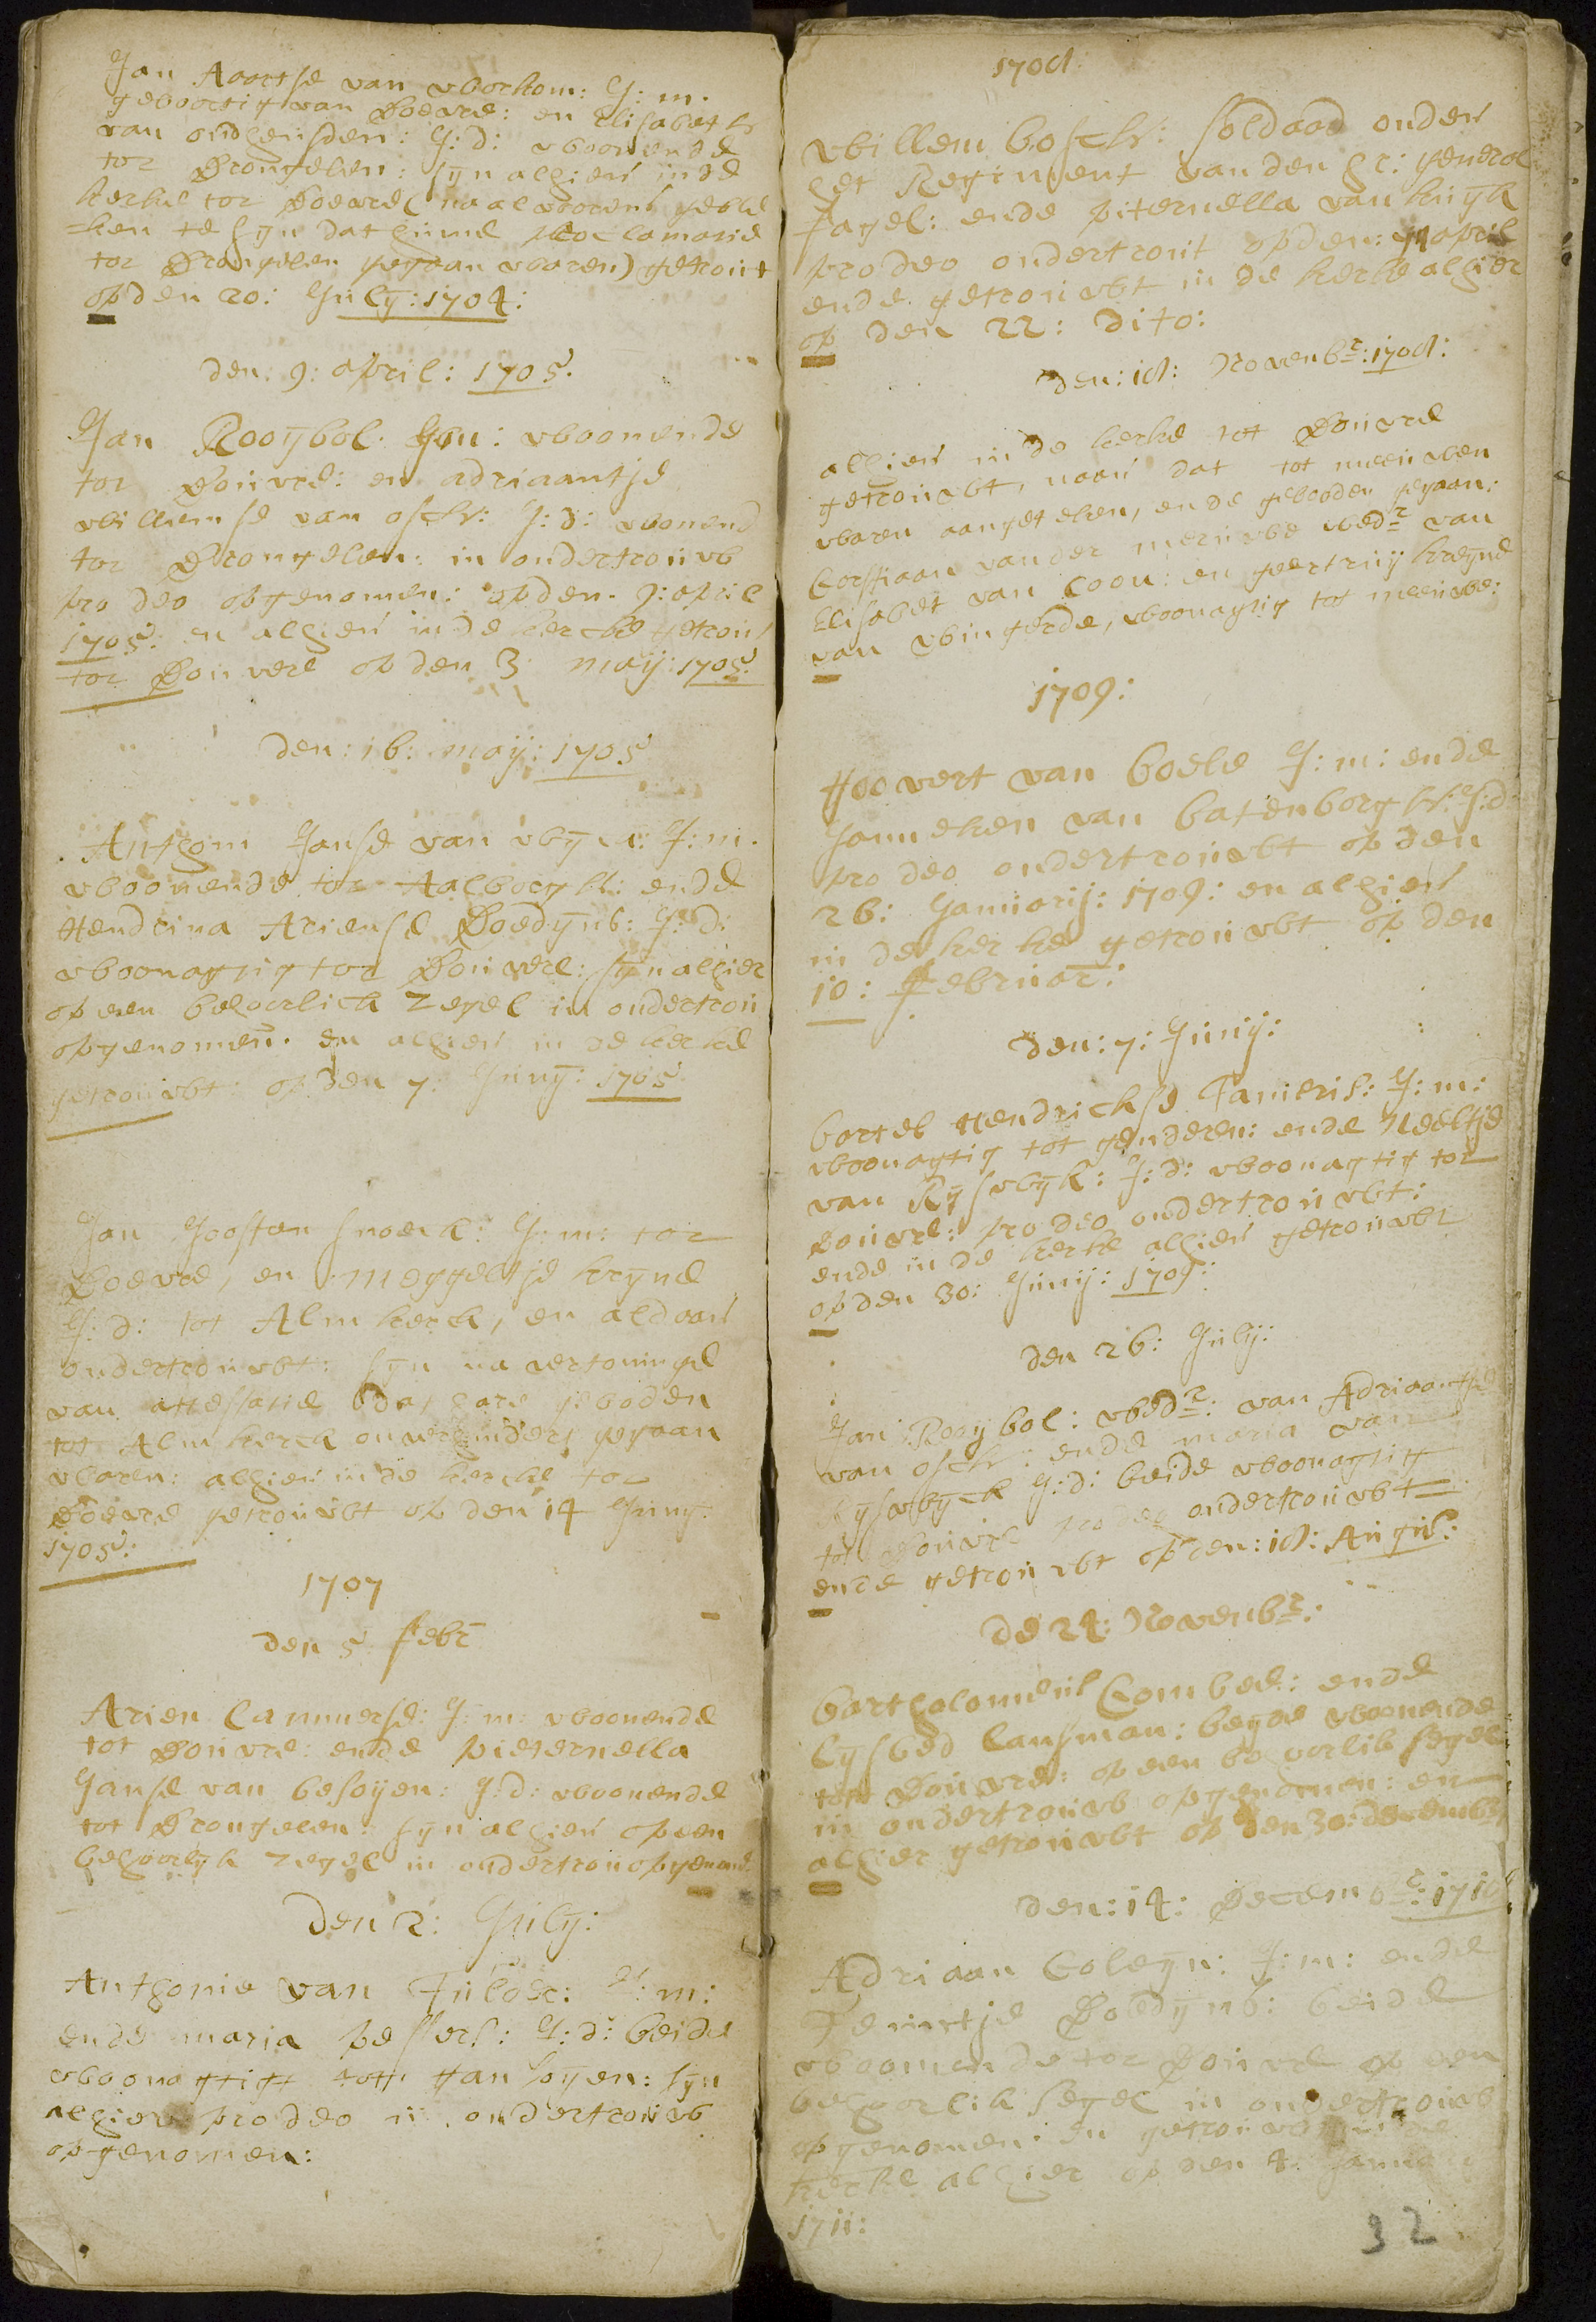 Jan Aaertse van workom: J: m.
geboortig van Doevre: en Elisabeth
van oudheusden: J: d: woonende
tot Drongelen: syn alhier inde
kerke tot Doevre (na alvoorens geble
=ken te syn dat hunne proclamatie
tot Drongelen gegaan waren) getrout
op den 20: July: 1704:
den: 9: april: 1705.
Jan Rooÿbol. J:m: woonende
tot Douvre: en adriaantje
willemse van osch: J: d: wonend
tot Drongelen: in ondertrouw
pro deo opgenomen: op den. 9: april
1705: en alhier inde kercke getrout
tot Douvere op den 3 maÿ: 1705:
den: 16: maÿ: 1705
Anthoni Janse van wÿck: J: m.
woonende tot Aalborgh: ende
Hendrina Ariense Boedÿns: J: d:
woonagtig tot Douvere: sÿn alhier
op een behoorlick zegel in ondertrou
opgenomen. en alhier in de kerke
getrouwt: op den 7: Junÿ: 1705
Jan Joosten snoeck: J: m: tot
Doevre, en Meggeltje krÿne
J: d: tot Almkerck, en aldaar
ondertrouwt: syn na vertoninge
van attestatie dat hare geboden
tot Almkerck onverhindert gegaan
waren: alhier in de kercke tot
Doevre getrouwt op den 14 Juny.
1705:
1707
den 5 febr
Arien Cammerse: J: m: woonende
tot Douvre: ende pieternella
Janse van besoÿen: J: d: woonende
tot Drongelen: syn alhier op een
behoorlÿk zegel in ondertrou opgenome
den 2: Julÿ:
Anthonie van Tuloer: J: m:
ende maria pessers: J: d: beide
woonagtigh toth Hansoÿen: sÿn
alhier pro deo in ondertrouw
opgenomen:
1708.
willem bosch: soldaad onder
het Regiment van den hr: generael
fagel: ende piternella van kuÿk
pro deo ondertrout op den: april
ende getrouwt in de kerke alhier
op den 22: dito:
Den: 18: Novenbr: 1708:
alhier in de kerke tot Douvre
getrouwt, naar dat tot meeuwen
waren aangeteken, ende gebooden gegaan:
Corstiaan vander meruwe wedr van
Elisabet van Coou: en geertruÿ kreÿne
van wingerde, woonagtig tot meeuwe:
1709:
Hoovert van boele J: m: ende
Janneken van batenborgh: J:d:
pro deo ondertrouwt op den
26: Januarij: 1709: en alhier
in de kerke getrouwt op den
10: Februar:
den: 7: Junij:
bartel Hendrickse Tanieris: J: m:
woonagtig tot genderen: ende Neeltje
van Rÿswÿk: J: d: woonagtig tot
Douvre: pro deo ondertrouwt:
ende in de kerke alhier getrouwt
op den 30: Junij: 1709:
den 26: Julÿ:
Jan Rooÿbol: wedr: van Adriaantje
van osch: ende maria van
Rÿswÿck J: d: beide woonagtig
tot Douvre pro deo ondertrouwt
ende getrouwt op den: 18: August:
de 24: Novenbr:
bartholomeus Combee: ende
Lÿsbed Lansman: beyde woonende
tot Douvre: op een behoorlik segel
in ondertrouw opgenomen: en
alhier getrouwt op den 30: decembr
den: 14: Decembr: 1710
Adriaan Coleÿn: J: m: ende
Teuntje Boedÿns: beide
woonende tot Douvre op een
behoorlik segel in ondertrouw
opgenomen: en getrouwt in de
kerke alhier op den 4. Janua
1711:
32